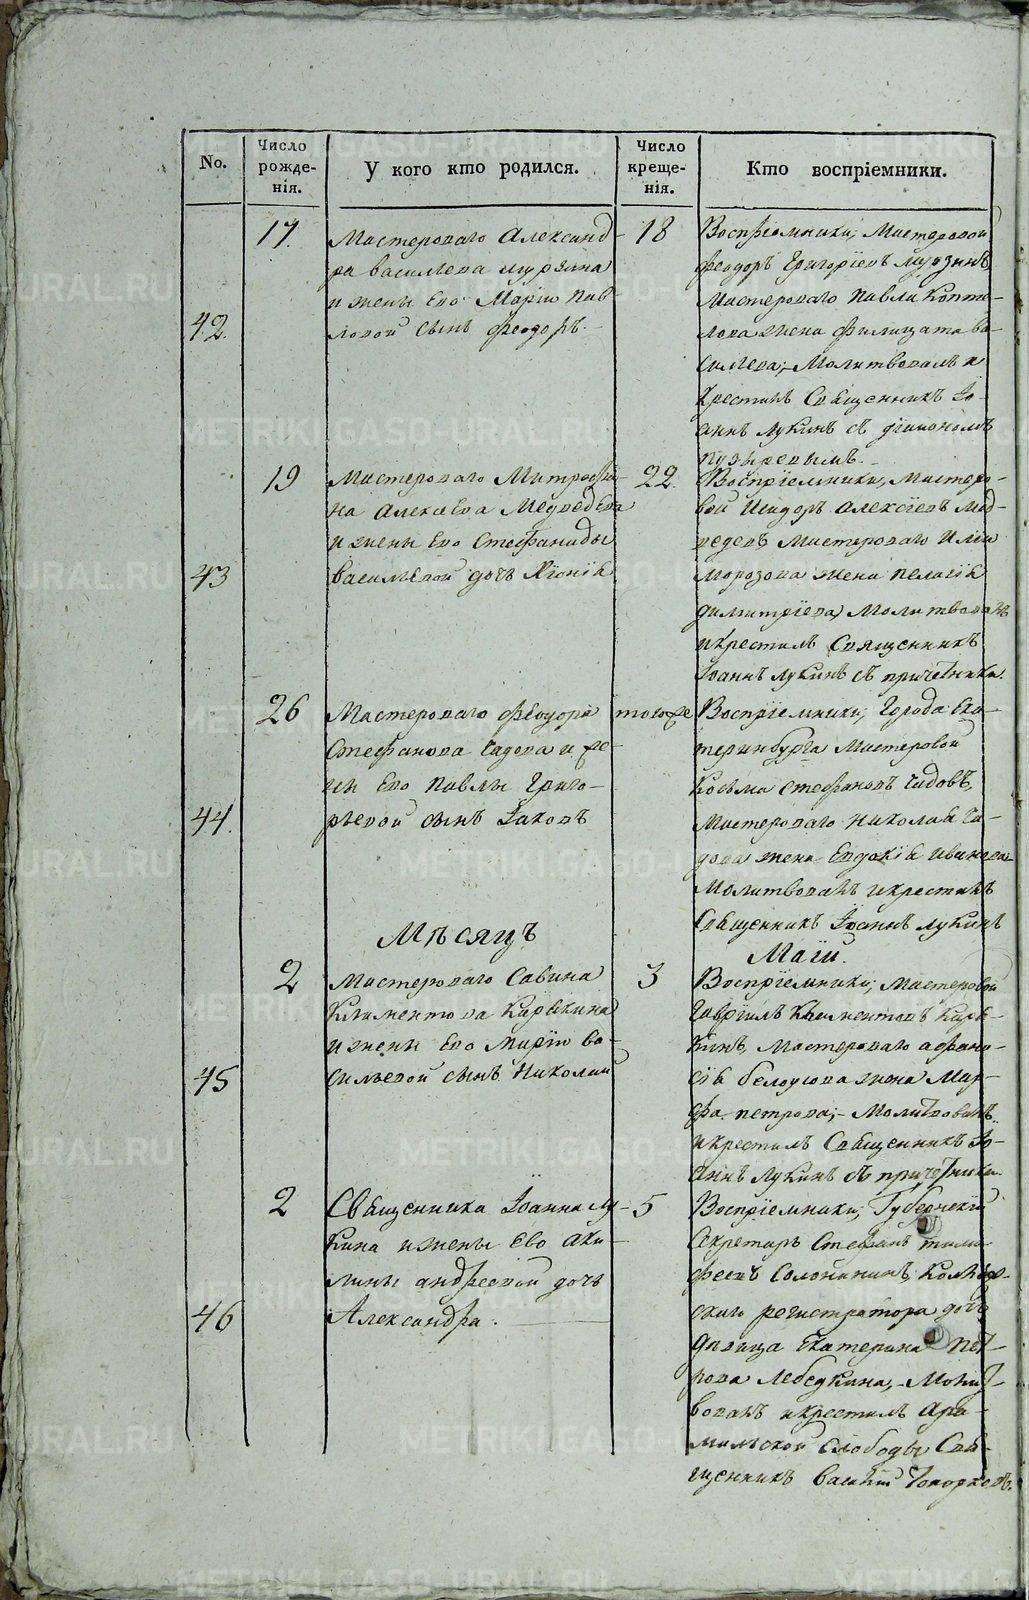 No.
Число рожде-нія.
У кого кто родился.
Число креще-нія.
Кто воспріемники.
42.
17.
Мастероваго Александ-
ра васильева мурзина
и жены Его Маріи Пав-
ловой сынъ Феодоръ.
18
Воспріемники; Мастеровой
Феодоръ Григоріевъ Мурзинъ,
Мастероваго Павла Копти-
лова жена Филицата ва-
сильева; Молитвовалъ и
Крестилъ Священникъ Іо-
аннъ Лукинъ съ діакономъ
Пузыревымъ.
43
19
Мастероваго Митрофа-
на Алексѣева Медведева
и жены Его Стефаниды
васильевой дочь Хіонія
22.
Воспріемники, мастеро-
вой Исидоръ Алексіевъ Мед-
ведевъ Мастероваго Иліи
Морозова жена Пелагія
димитріева, Молитвовалъ
и крестилъ Священникъ
Іоаннъ Лукинъ съ причетники.
44.
26
Мастероваго Феодора
Стефанова Чадова и же-
ны Его Павлы Григо-
рьевой сынъ Іаковъ
того же
Воспріемники; Города Ека-
теринбурга Мастеровой
Косьма Стефановъ Чадовъ,
Мастероваго Николая Ча-
дова жена Евдокія Иванова
Молитвовалъ и крестилъ
Священникъ Іоаннъ Лукинъ
Мѣсяцъ
Маій.
45
2
Мастероваго Савина
Климентова Карякина
и жены Его Маріи ва-
сильевой сынъ Николай
3
Воспріемники; мастеровой
Гавріилъ Климентовъ Каря-
кинъ, Мастероваго Афана-
сія белоусова жена Мар-
фа петрова; Молитвовалъ
и крестилъ Священникъ Іо-
аннъ Лукинъ съ причетники.
46
2
Священника Іоанна Лу-
кина и жены Ево Аки-
лины андреевой дочь
Александра.
5
Воспріемники; Губернскій
Секретарь Стефанъ тимо-
феевъ Солонининъ, Коллеж-
скаго регистратора дочь
Девица Екатерина Пет-
рова Лебедкина, Молит-
вовалъ и крестилъ Ара-
мильской слободы Свя-
щенникъ Василій Топорковъ.
METRIKI.GASO-URAL.RU